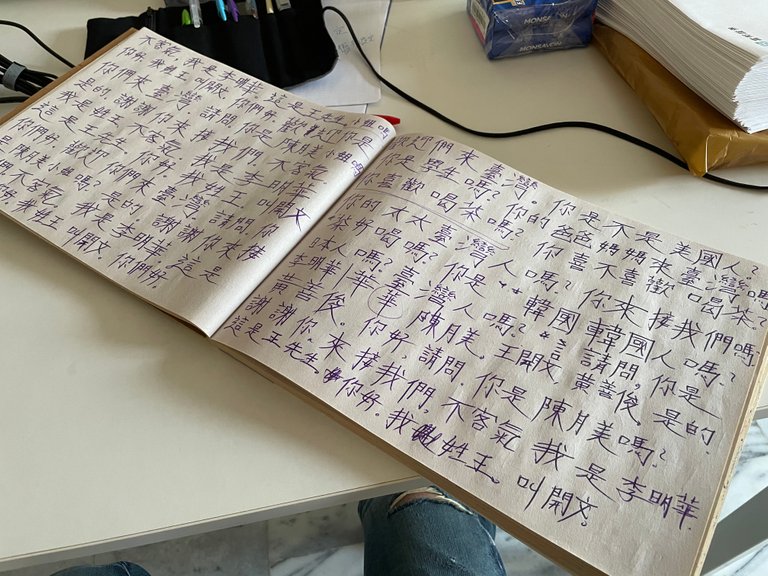 不客氣，我是李明華。這是王先生。
你好，我姓王，叫開文。你們好，歡迎
你們來臺灣。請問你是陳月美小姐嗎
是的，謝謝你來接我們。不客氣。
我是姓王。不客氣。我是李明華
這是王先生。你好，我姓王叫開文
你們好。歡迎你們來臺灣。請問你
陳月美小姐嗎？是的，謝謝你來接
們。不客氣。我是李明華。這是
你好，我姓王叫開文。你們好。
歡迎們來臺灣。你是不是美國人？
你是學生嗎？你的爸爸媽媽來臺灣嗎
你喜歡喝茶嗎？你喜不喜歡喝茶？
你的太太臺灣人嗎？你來接我們嗎
茶好喝嗎？你是韓國韓國人嗎？
日本人嗎？臺灣人嗎？請問，你是
李明華華華陳月美。王開文黃善俊。是的.
黃善俊。你好，請問。你是陳月美嗎？
謝謝你。來接我們。不客氣我是李明華
這是王先生。你好。我姓王。叫開文。
MONSAVON
MONSAVON